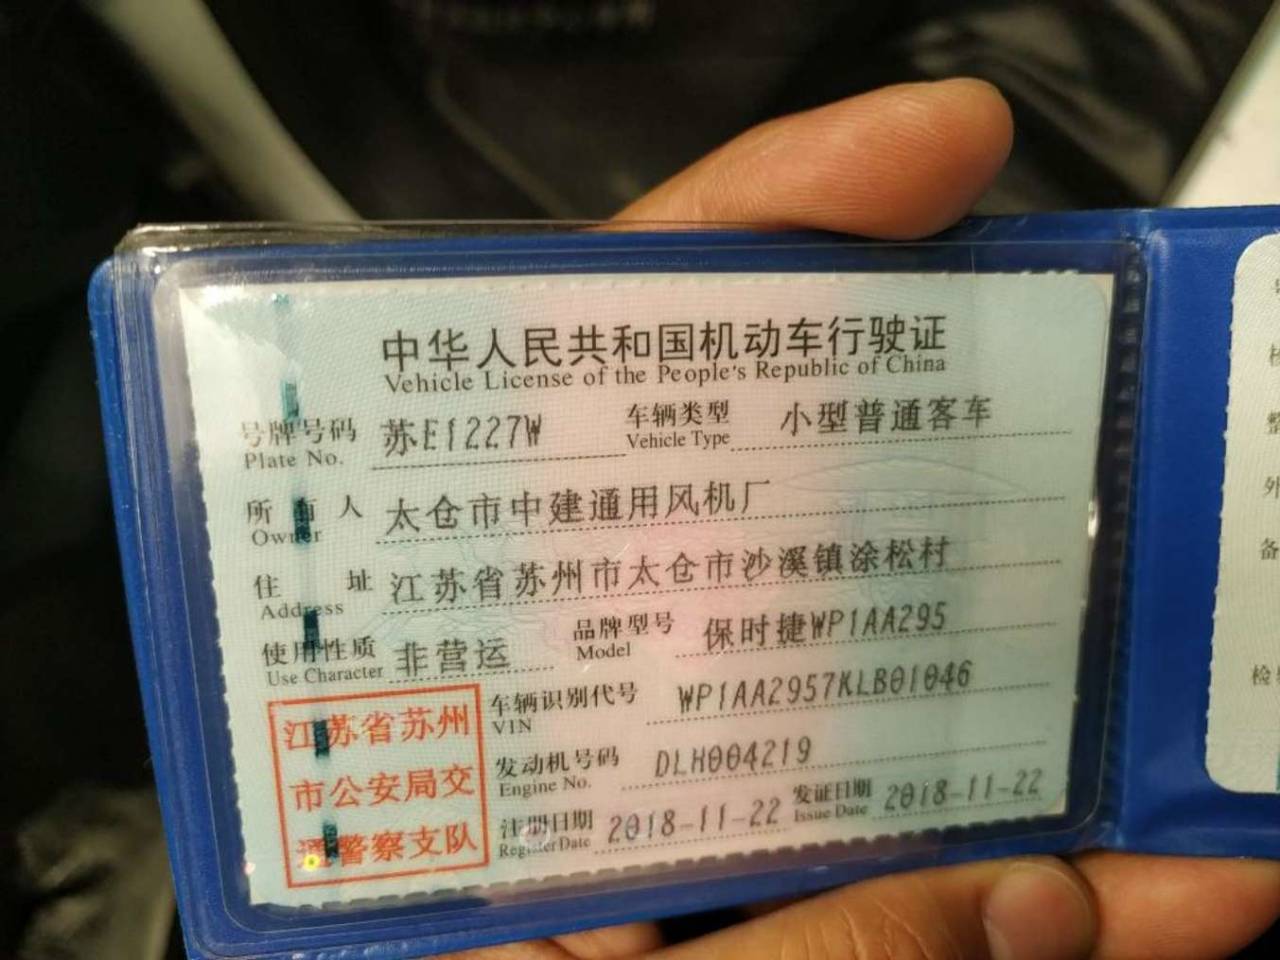 中华人民共和国机动车行驶证
Vehicle License of the People's Republic of China
号牌号码 苏E1227W 车辆类型 小型普通客车
Plate No. Vehicle Type
所有人 太仓市中建通用风机厂
Owner
住址 江苏省苏州市太仓市沙溪镇涂松村
Address
使用性质 非营运 品牌型号 保时捷WP1AA295
Use Character Model
车辆识别代号 WP1AA2957KLB01046
VIN
发动机号码 DLH004219
Engine No.
注册日期 2018-11-22 发证日期 2018-11-22
Register Date Issue Date
江苏省苏州
市公安局交
通警察支队
整
外
备
检